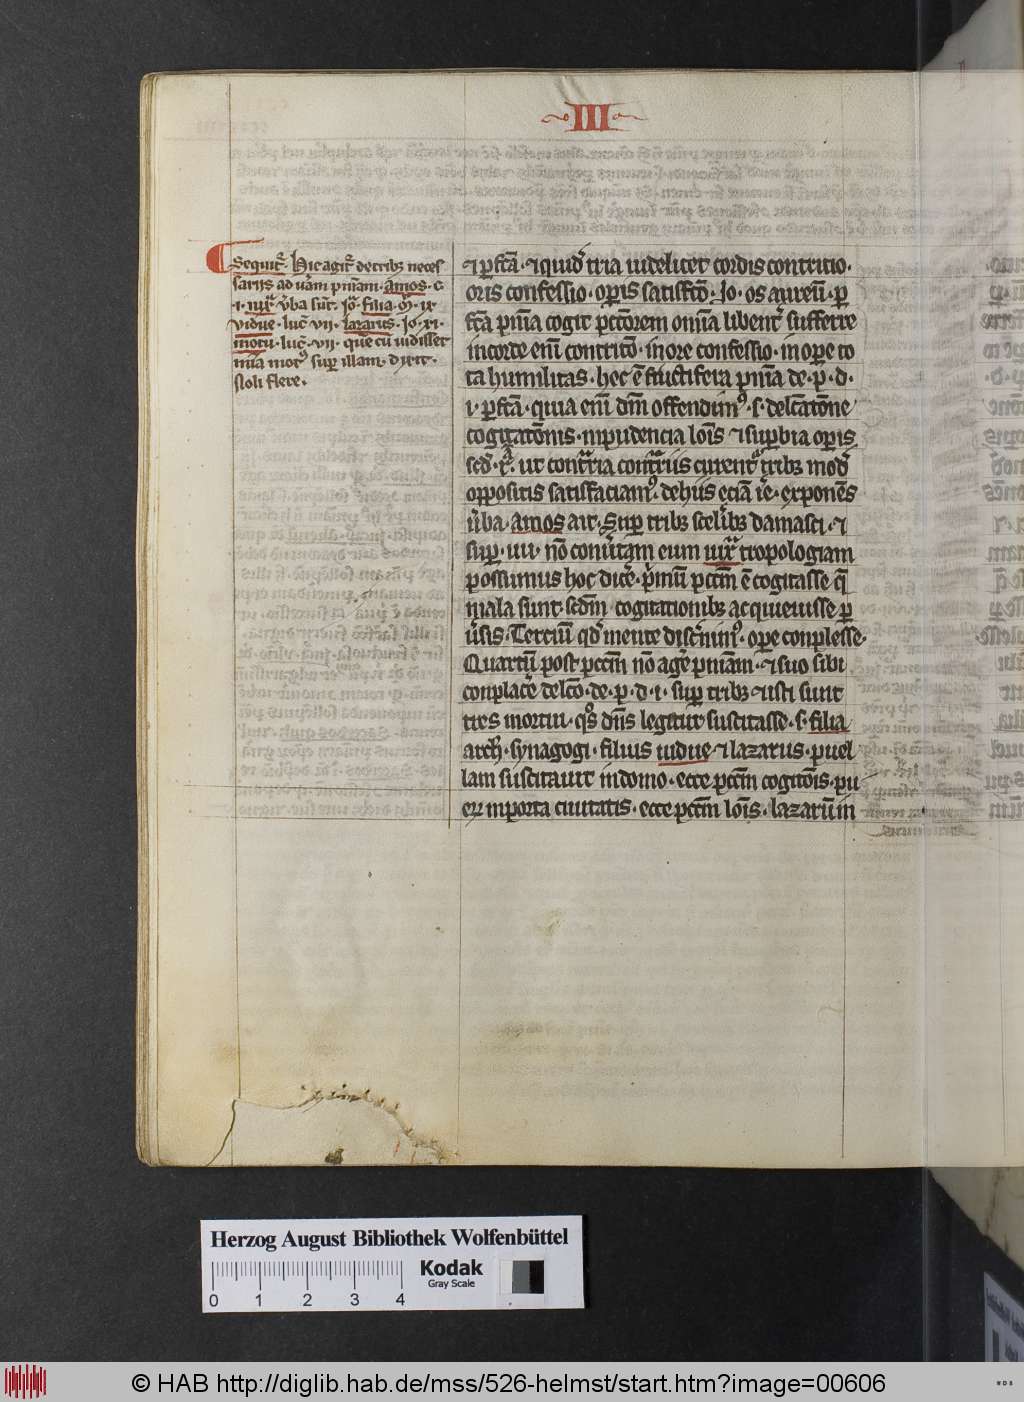 III
Sequit̄. Hic agit̄ de tribꝫ neces
sariis ad ūam pn̄iam. Amos. c
i. iux̄ ūba sūt. Jo. filia. M̄. ix
vidue. luc̄. vii. lazarus. Jo. xi.
motu. luc̄. vii. que cū vidisset
mīa motꝰ suꝑ illam. dixit.
Noli flere.
⁊ ꝑfcā. ⁊ quid tria uidelicet cordis contritio.
oris confessio. oꝑis satisfcō. Jo. os aureū. ꝑ
fcā pn̄ia cogit pctōrem om̄ia libent̄ sufferre
in corde eni᷒ contritō. in ore confessio. in oꝑe to
ta humilitas. hec ē fructifera pn̄ia de. p. d.
i. ꝑfcā. quia eni᷒ dm̄ offendimꝰ. s. delc̄atōne
cogitatōnis. inpudencia lōis ⁊ suꝑbia oꝑis
ut contria contriis curent tribꝫ mod̄
oppositis satisfaciamꝰ. de hiis eciā ie. exponēs
ūba. Amos ait. Suꝑ tribꝫ scelibꝫ damasci. ⁊
suꝑ. iiii. nō conūtam eum iux̄ tropologiam
possumus hoc dice. pmū pctm̄ ē cogitasse q̄
mala sunt scdm̄ cogitationibꝫ acquieuisse ꝑ
ūsis. Terciū qd̄ mente disc̄nimꝰ. oꝑe conplesse.
Quartū post pctm̄ nō age pn̄iam. ⁊ suo sibi
conplace delcō. de. p. d. i. suꝑ tribꝫ ⁊ isti sunt
tres mortui. qs̄ dn̄s legitur suscitasse. s. filia
arch̄. synagogi. filius uidue ⁊ lazarus. puel
lam suscitauit in domo. ecce pctm̄ cogitōis. pu
er in porta ciuitatis. ecce pctm̄ lōis. lazarū in
Herzog August Bibliothek Wolfenbüttel
Kodak
Gray Scale
0 1 2 3 4
© HAB http://diglib.hab.de/mss/526-helmst/start.htm?image=00606